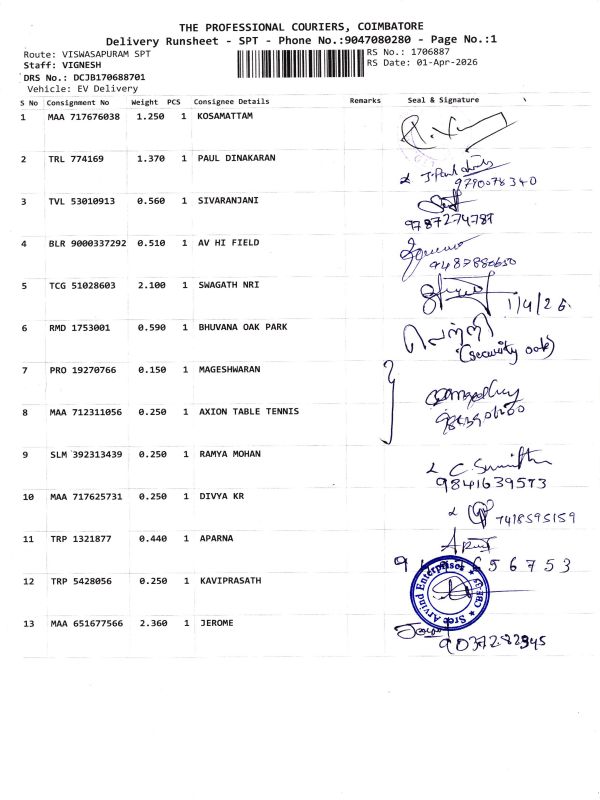 THE PROFESSIONAL COURIERS, COIMBATORE
Delivery Runsheet - SPT - Phone No.:9047080280 - Page No.:1
Route: VISWASAPURAM SPT
RS No.: 1706887
Staff: VIGNESH
RS Date: 01-Apr-2026
DRS No.: DCJB170688701
Vehicle: EV Delivery
S No Consignment No Weight PCS Consignee Details Remarks Seal & Signature
1 MAA 717676038 1.250 1 KOSAMATTAM
2 TRL 774169 1.370 1 PAUL DINAKARAN
9790078340
3 TVL 53010913 0.560 1 SIVARANJANI
9787274787
4 BLR 9000337292 0.510 1 AV HI FIELD
9487880650
5 TCG 51028603 2.100 1 SWAGATH NRI
1/4/26.
6 RMD 1753001 0.590 1 BHUVANA OAK PARK
(security oak)
7 PRO 19270766 0.150 1 MAGESHWARAN
8 MAA 712311056 0.250 1 AXION TABLE TENNIS
9 SLM 392313439 0.250 1 RAMYA MOHAN
9841639573
10 MAA 717625731 0.250 1 DIVYA KR
7418595159
11 TRP 1321877 0.440 1 APARNA
656753
12 TRP 5428056 0.250 1 KAVIPRASATH
Arvind Enterprises
13 MAA 651677566 2.360 1 JEROME
9037282945